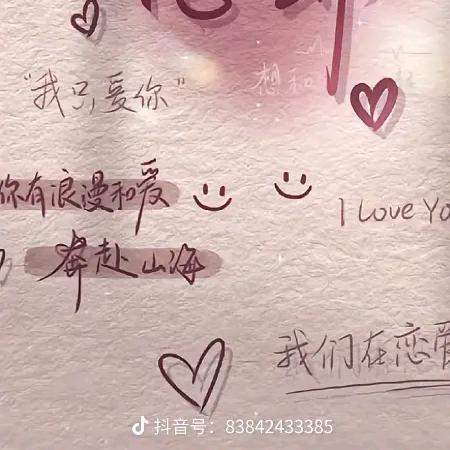 "我只爱你"
想和
你有浪漫和爱
I Love Yo
奔赴山海
我们在恋爱
抖音号：83842433385